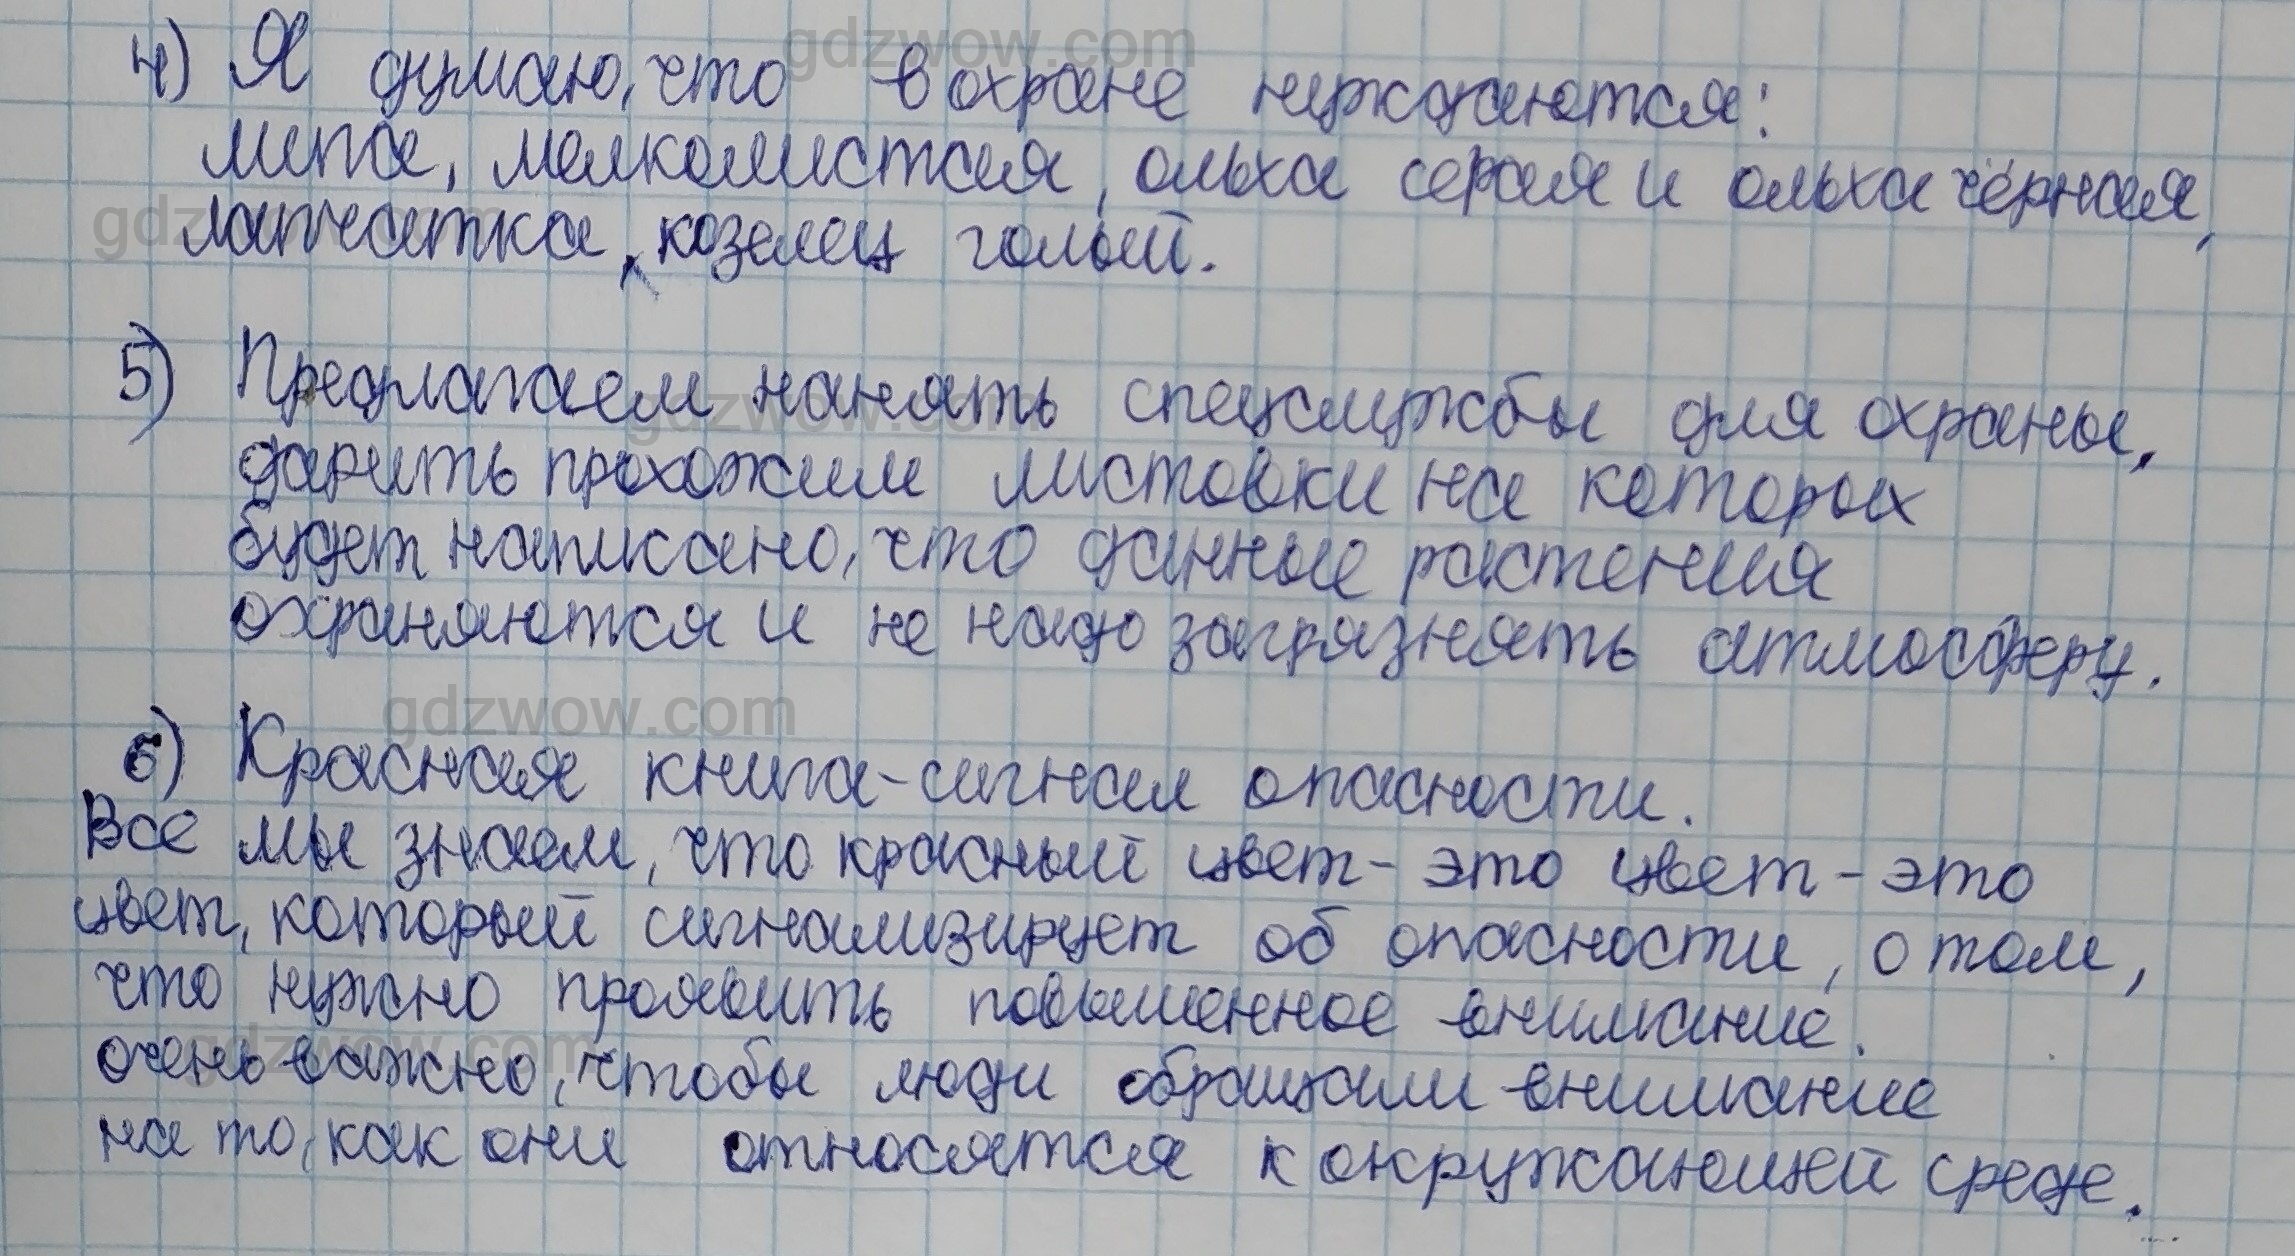 4) Я думаю, что в охране нуждаются:
липа, мелколистая, ольха серая и ольха чёрная,
лапчатка, козелец голый.
5) Предлагаем нанять спецслужбы для охраны,
дарить прохожим листовки на которых
будет написано, что данные растения
охраняются и не надо загрязнять атмосферу.
6) Красная книга-сигнал опасности.
Все мы знаем, что красный цвет - это цвет - это
цвет, который сигнализирует об опасности, о том,
что нужно проявить повышенное внимание.
очень важно, чтобы люди обращали внимание
на то, как они относятся к окружающей среде.
gdzwow.com
gdzwow.com
gdzwow.com
gdzwow.com
gdzwow.com